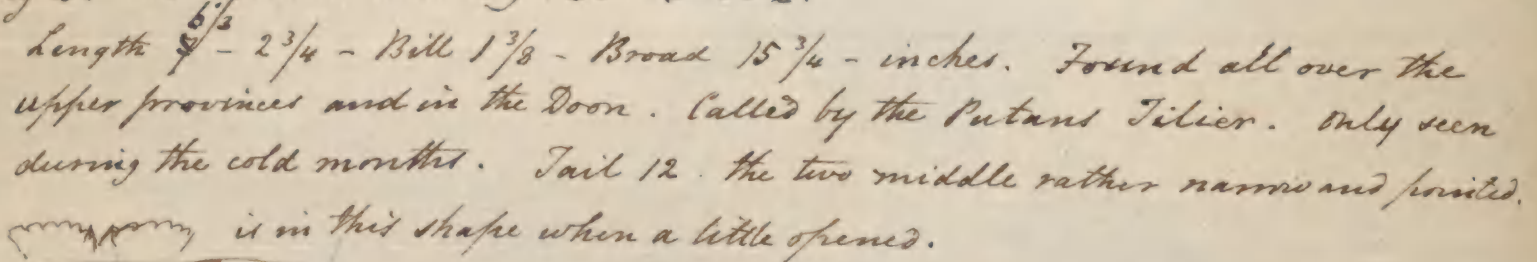 Length 6 1/3 - 2 3/4 - Bill 1 3/8 - Broad 15 3/4 - inches. Found all over the
upper provinces and in the Doon. Called by the Putans Tilier. Only seen
during the cold months. Tail 12. the two middle rather narrow and pointed.
is in this shape when a little opened.